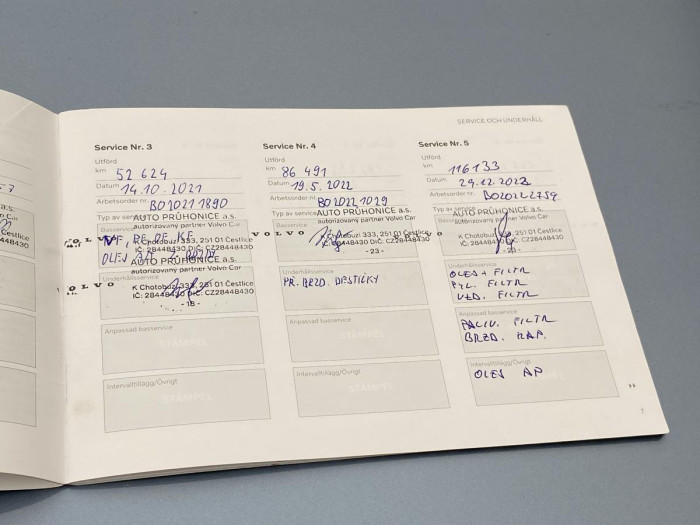 SERVICE OCH UNDERHÅLL
Service Nr. 3
Utförd
km 52 624
Datum 14.10.2021
Arbetsorder nr. BO20211890
Typ av service
AUTO PRŮHONICE a.s.
autorizovaný partner Volvo Car
VOLVO K Chotobuzi 333, 251 01 Čestlice
IČ: 28448430 DIČ: CZ28448430
AUTO PRŮHONICE a.s.
autorizovaný partner Volvo Car
VOLVO K Chotobuzi 333, 251 01 Čestlice
IČ: 28448430 DIČ: CZ28448430
- 18 -
Anpassad basservice
STÄMPEL
Intervalltillägg/Övrigt
STÄMPEL
Service Nr. 4
Utförd
km 86 491
Datum 19.5.2022
Arbetsorder nr. BO20221029
Typ av service
AUTO PRŮHONICE a.s.
Basservice
autorizovaný partner Volvo Car
VOLVO K Chotobuzi 333, 251 01 Čestlice
IČ: 28448430 DIČ: CZ28448430
- 23 -
Underhållsservice
PŘ. BRZD. DESTIČKY
Anpassad basservice
STÄMPEL
Intervalltillägg/Övrigt
STÄMPEL
Service Nr. 5
Utförd
km 116133
Datum
Arbetsorder nr. BO20222759
Typ av service
AUTO PRŮHONICE a.s.
Basservice
autorizovaný partner Volvo Car
K Chotobuzi 333, 251 01 Čestlice
IČ: 28448430 DIČ: CZ28448430
Underhållsservice
OLEJ + FILTR
PYL. FILTR
VZD. FILTR
Anpassad basservice
PALIV. FILTR
BRZD. KAP.
Intervalltillägg/Övrigt
OLEJ AP
7